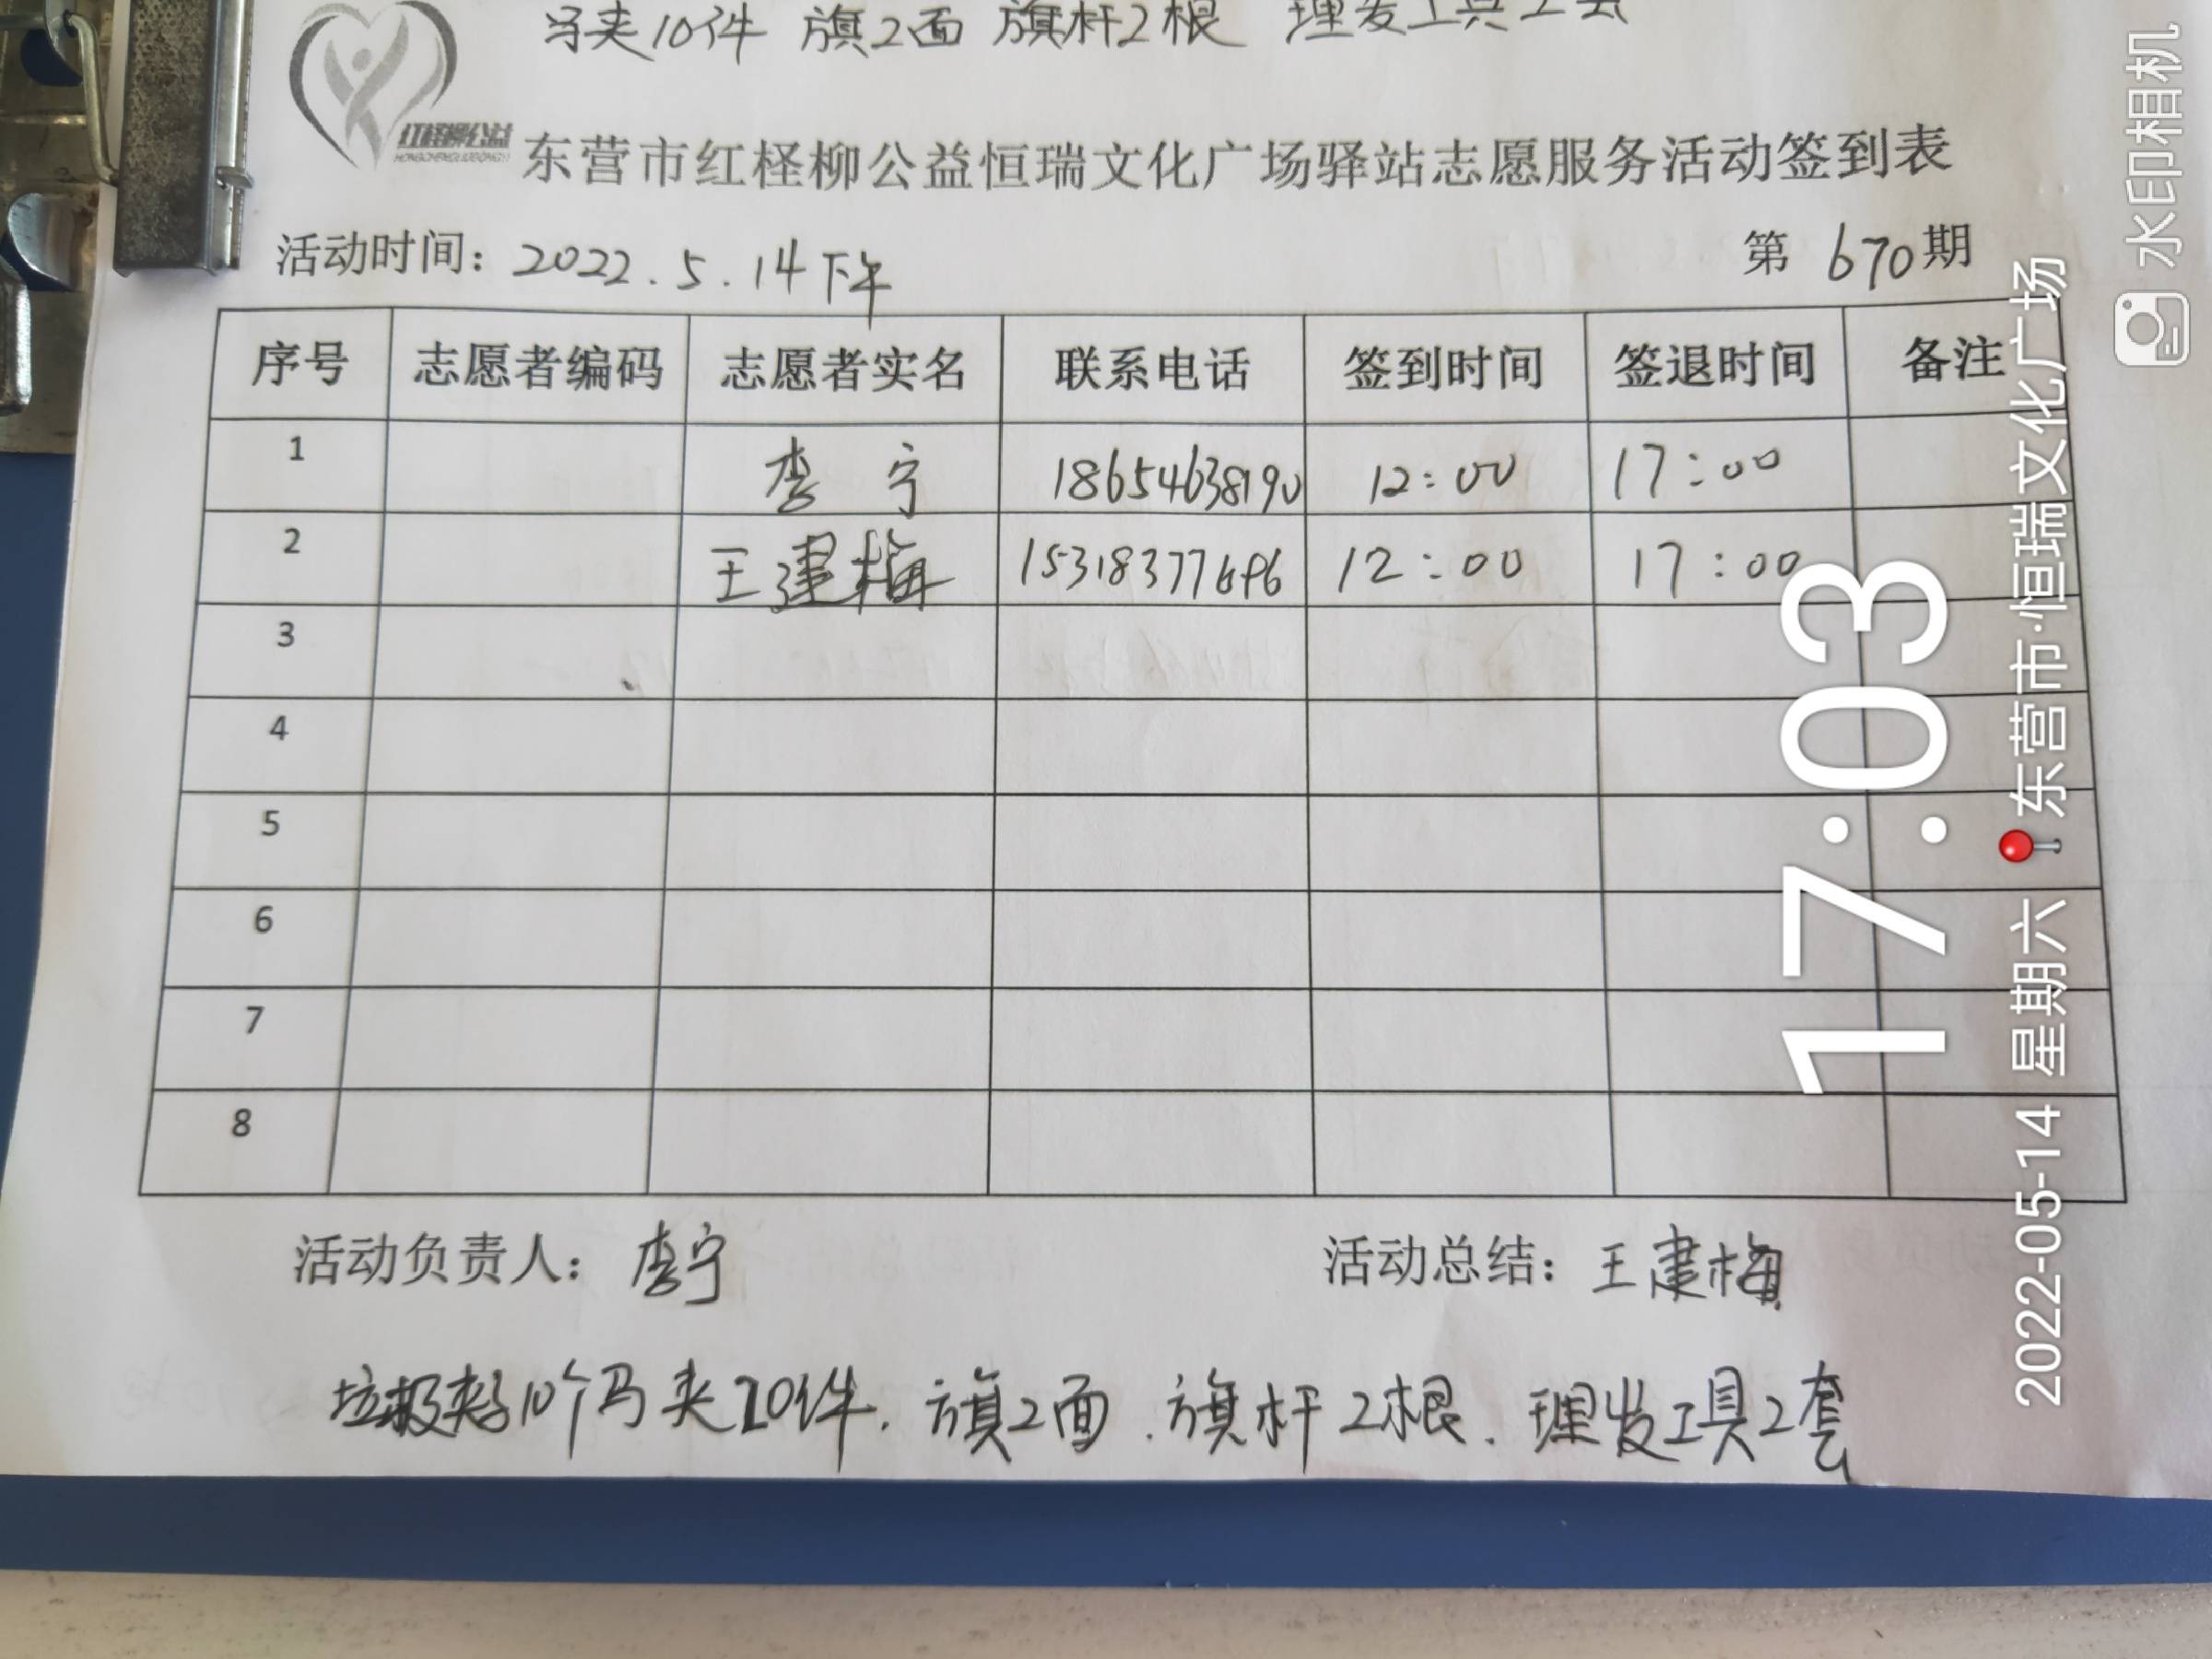 马夹10件 旗2面 旗杆2根 理发工具2套
红柽柳公益
东营市红柽柳公益恒瑞文化广场驿站志愿服务活动签到表
活动时间：2022.5.14下午 第670期
序号 志愿者编码 志愿者实名 联系电话 签到时间 签退时间 备注
1 李宁 18654638190 12:00 17:00
2 王建梅 12:00 17:00
3
4
5
6
7
8
活动负责人：李宁 活动总结：王建梅
垃圾夹子10个马夹10件.旗2面.旗杆2根.理发工具2套
17:03
2022-05-14 星期六 东营市·恒瑞文化广场
水印相机